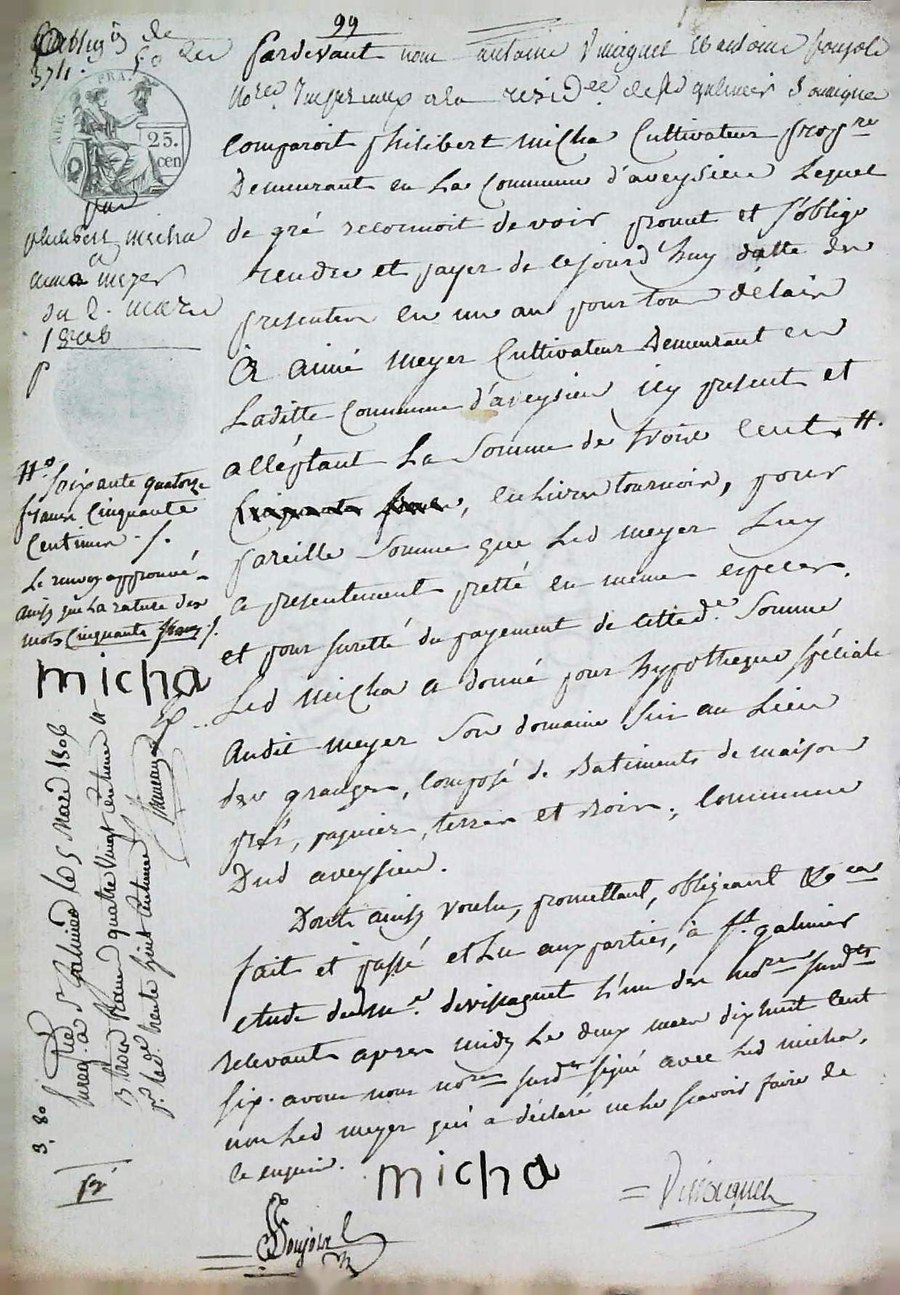 99
obligaon de
374. 50
REP. FRA
25.
cen
par
philibert micha
a
aimé meyer
du 2. mars
1806
pardevant nous antoine Vissaguet et antoine poujol
no.res Imperiaux a la resid.ce de St galmier soussignes
Comparoit philibert micha Cultivateur prop.re
Demeurant en La Commune d'aveysieu Lequel
de gré reconnoit devoir promet et s'oblige
rendre et payer de cejourd'huy datte des
presentes en un an pour tout délais
à aimé meyer Cultivateur Demeurant en
Laditte Commune d'aveysieu icy present et
acceptant La Somme de trois Cents #.
Cinquante francs, en livres tournois, pour
pareille Somme que Led meyer Luy
a presentement pretté en meme especes.
et pour suretté du payement de cette d.e Somme
Led micha a donné pour hypotheque spéciale
Audit meyer Son domaine Sis au Lieu
des granges, composé de Batiments de maison
prés, paquiers, terres et Bois, Commune
Dud aveysieu.
Dont ainsy voulu, promettant, obligeant &c.a
fait et passé et Lu aux parties, à St. galmier
etude de m.e Vissaguet L'un des no.res susd.ts
relevant apres midy Le deux mars dix huit Cent
six. avons nous no.res susd.ts signé avec Led micha,
non Led meyer qui a déclaré ne Le scavoir faire de
ce enquis.
micha
Vissaguet
Poujol
#o Soixante quatorze
francs Cinquante
Centimes ./.
Le renvoy approuvé
ainsy que La rature des
mots Cinquante francs ./.
micha
Enreg. à St Galmier le 5 Mars 1806
trois francs quatre vingt centimes
trente huit centimes
3. 80